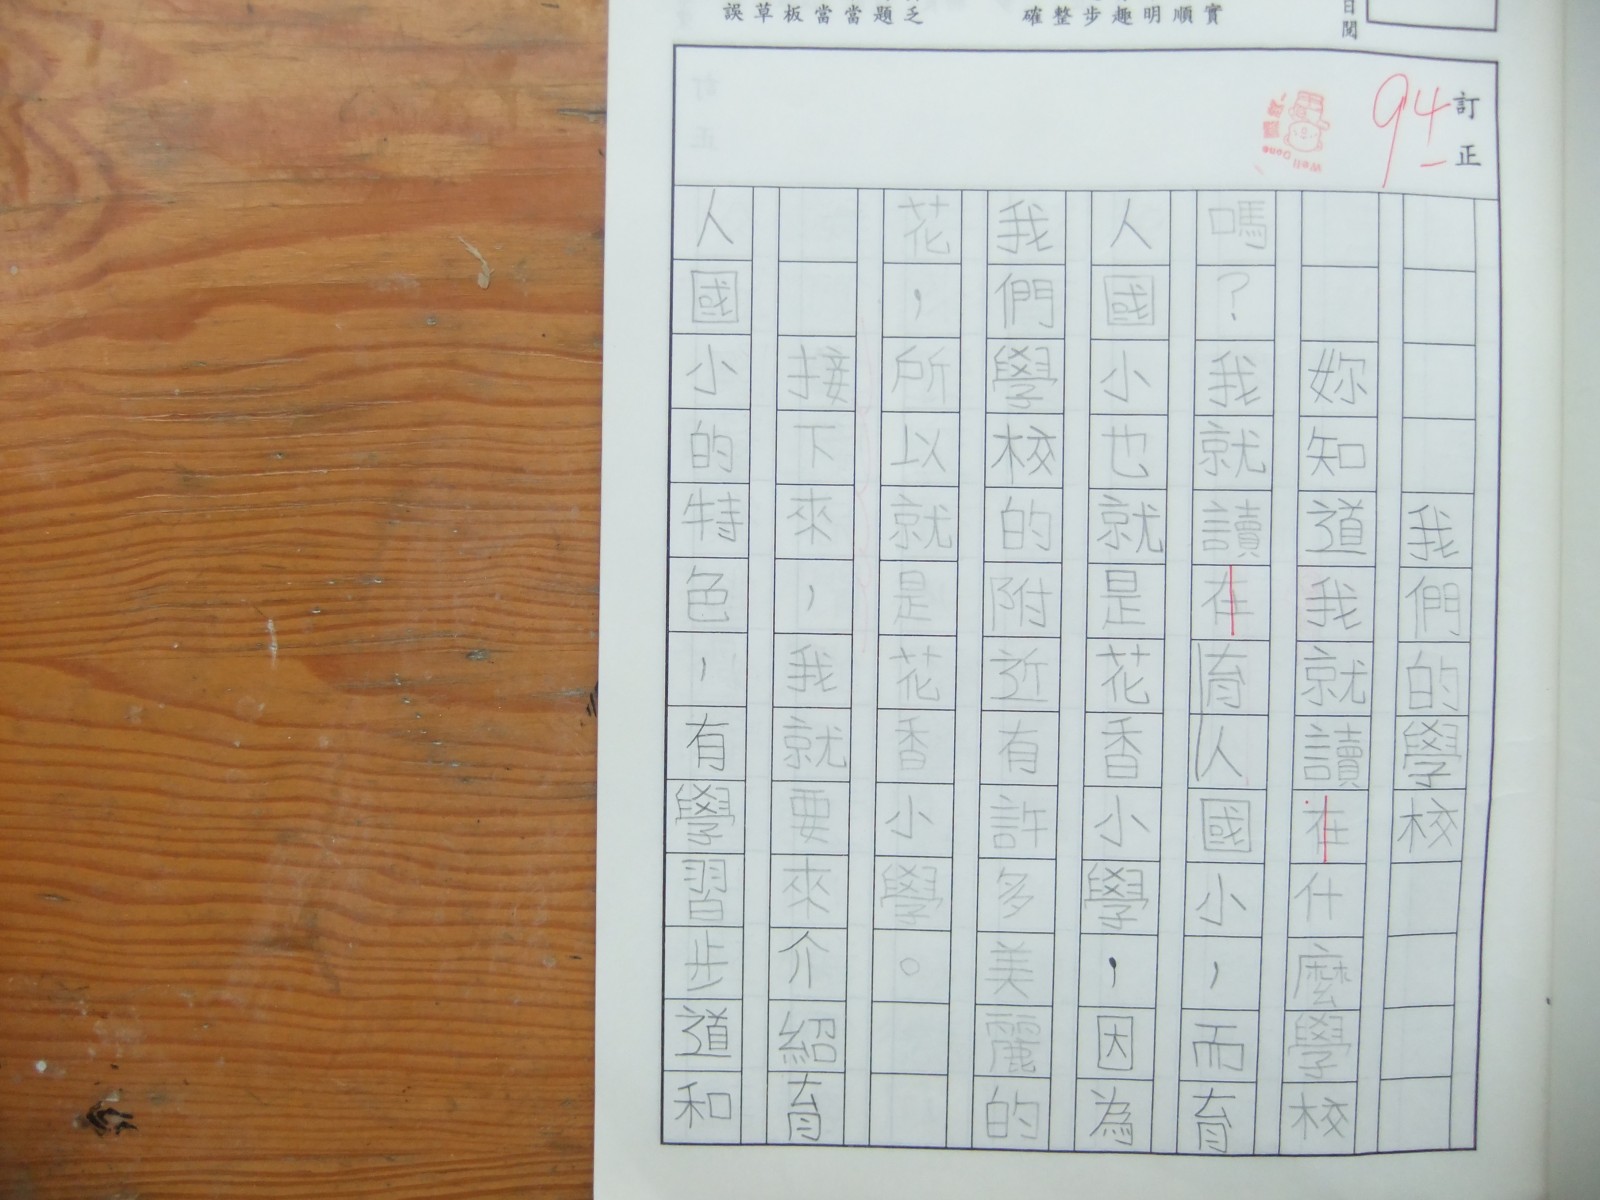 誤草板當當題乏
確整步趣明順實
日閱
訂正
94
Well Done
我們的學校
妳知道我就讀在什麼學校
嗎？我就讀在育人國小，而育
人國小也就是花香小學，因為
我們學校的附近有許多美麗的
花，所以就是花香小學。
接下來，我就要來介紹育
人國小的特色，有學習步道和